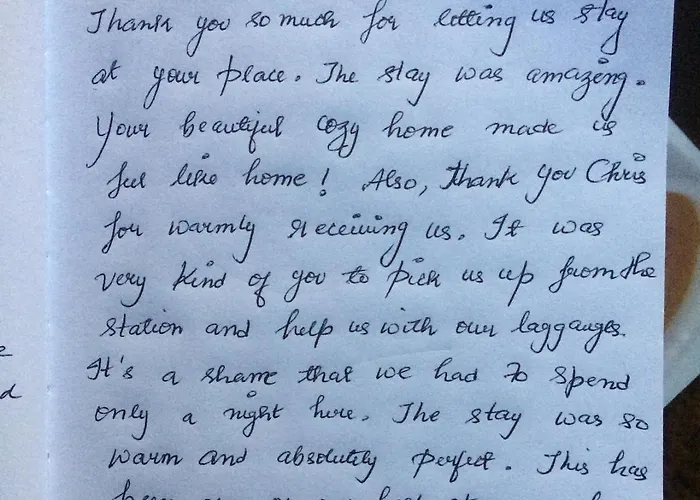 Thank you so much for letting us stay
at your place. The stay was amazing.
Your beautiful cozy home made us
feel like home! Also, thank you Chris
for warmly receiving us. It was
very kind of you to pick us up from the
station and help us with our laggauges.
It's a shame that we had to spend
only a night here. The stay was so
warm and absolutely perfect. This has